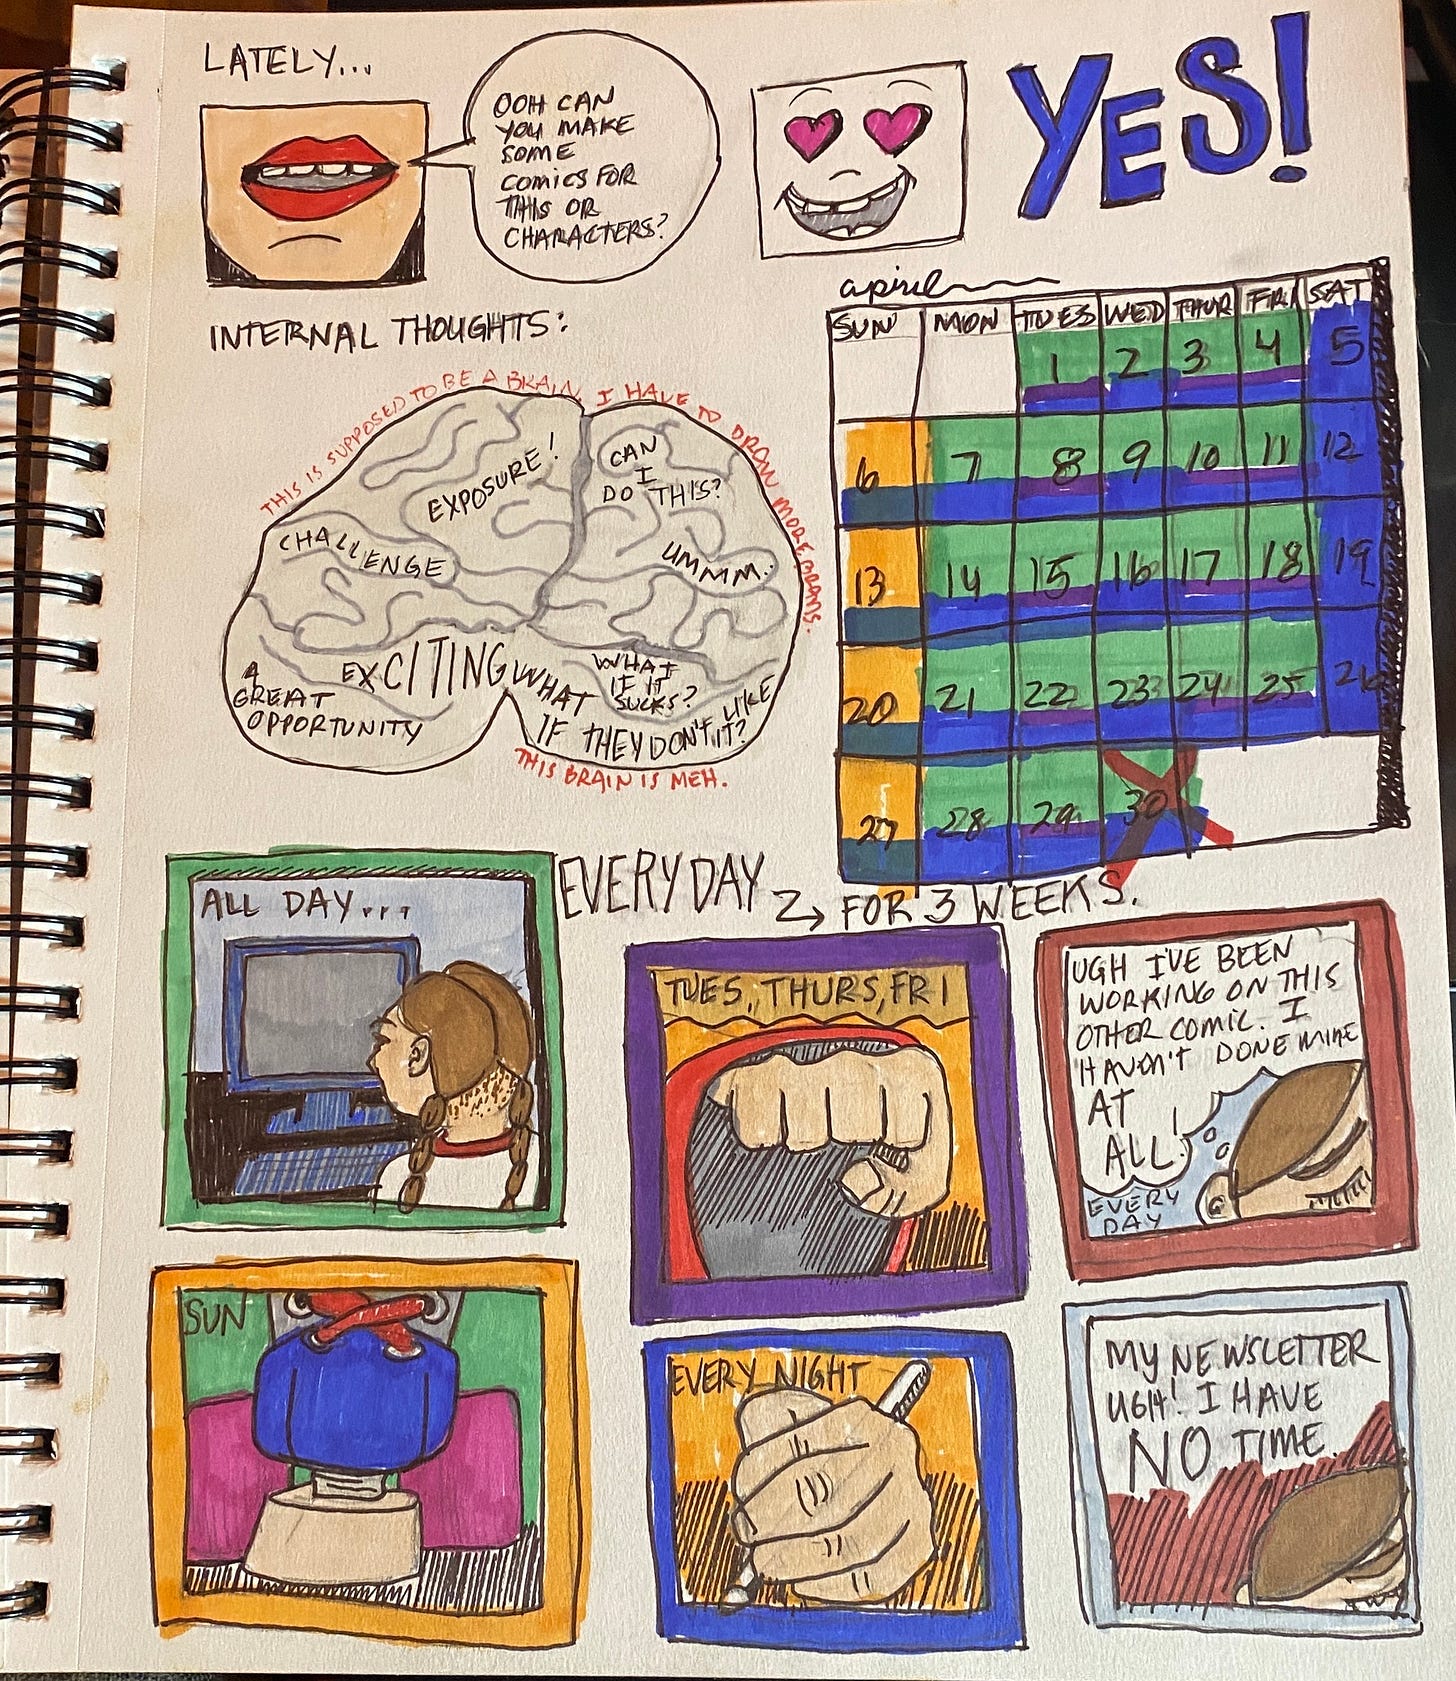 LATELY...
OOH CAN
YOU MAKE
SOME
COMICS FOR
THIS OR
CHARACTERS?
YES!
INTERNAL THOUGHTS:
THIS IS SUPPOSED TO BE A BRAIN, I HAVE TO DRAW MORE BRAINS.
EXPOSURE!
CHALLENGE
EXCITING
A
GREAT
OPPORTUNITY
CAN
I
DO THIS?
UMMM..
WHAT
IF IT
SUCKS?
WHAT
IF THEY DON'T LIKE
IT?
THIS BRAIN IS MEH.
april
SUN MON TUES WED THUR FRI SAT
1 2 3 4 5
6 7 8 9 10 11 12
13 14 15 16 17 18 19
20 21 22 23 24 25 26
27 28 29 30
EVERYDAY
FOR 3 WEEKS.
ALL DAY...
TUES, THURS, FRI
UGH I'VE BEEN
WORKING ON THIS
OTHER COMIC. I
HAVEN'T DONE MINE
AT
ALL!
EVERY
DAY
SUN
EVERY NIGHT
MY NEWSLETTER
UGH! I HAVE
NO TIME.